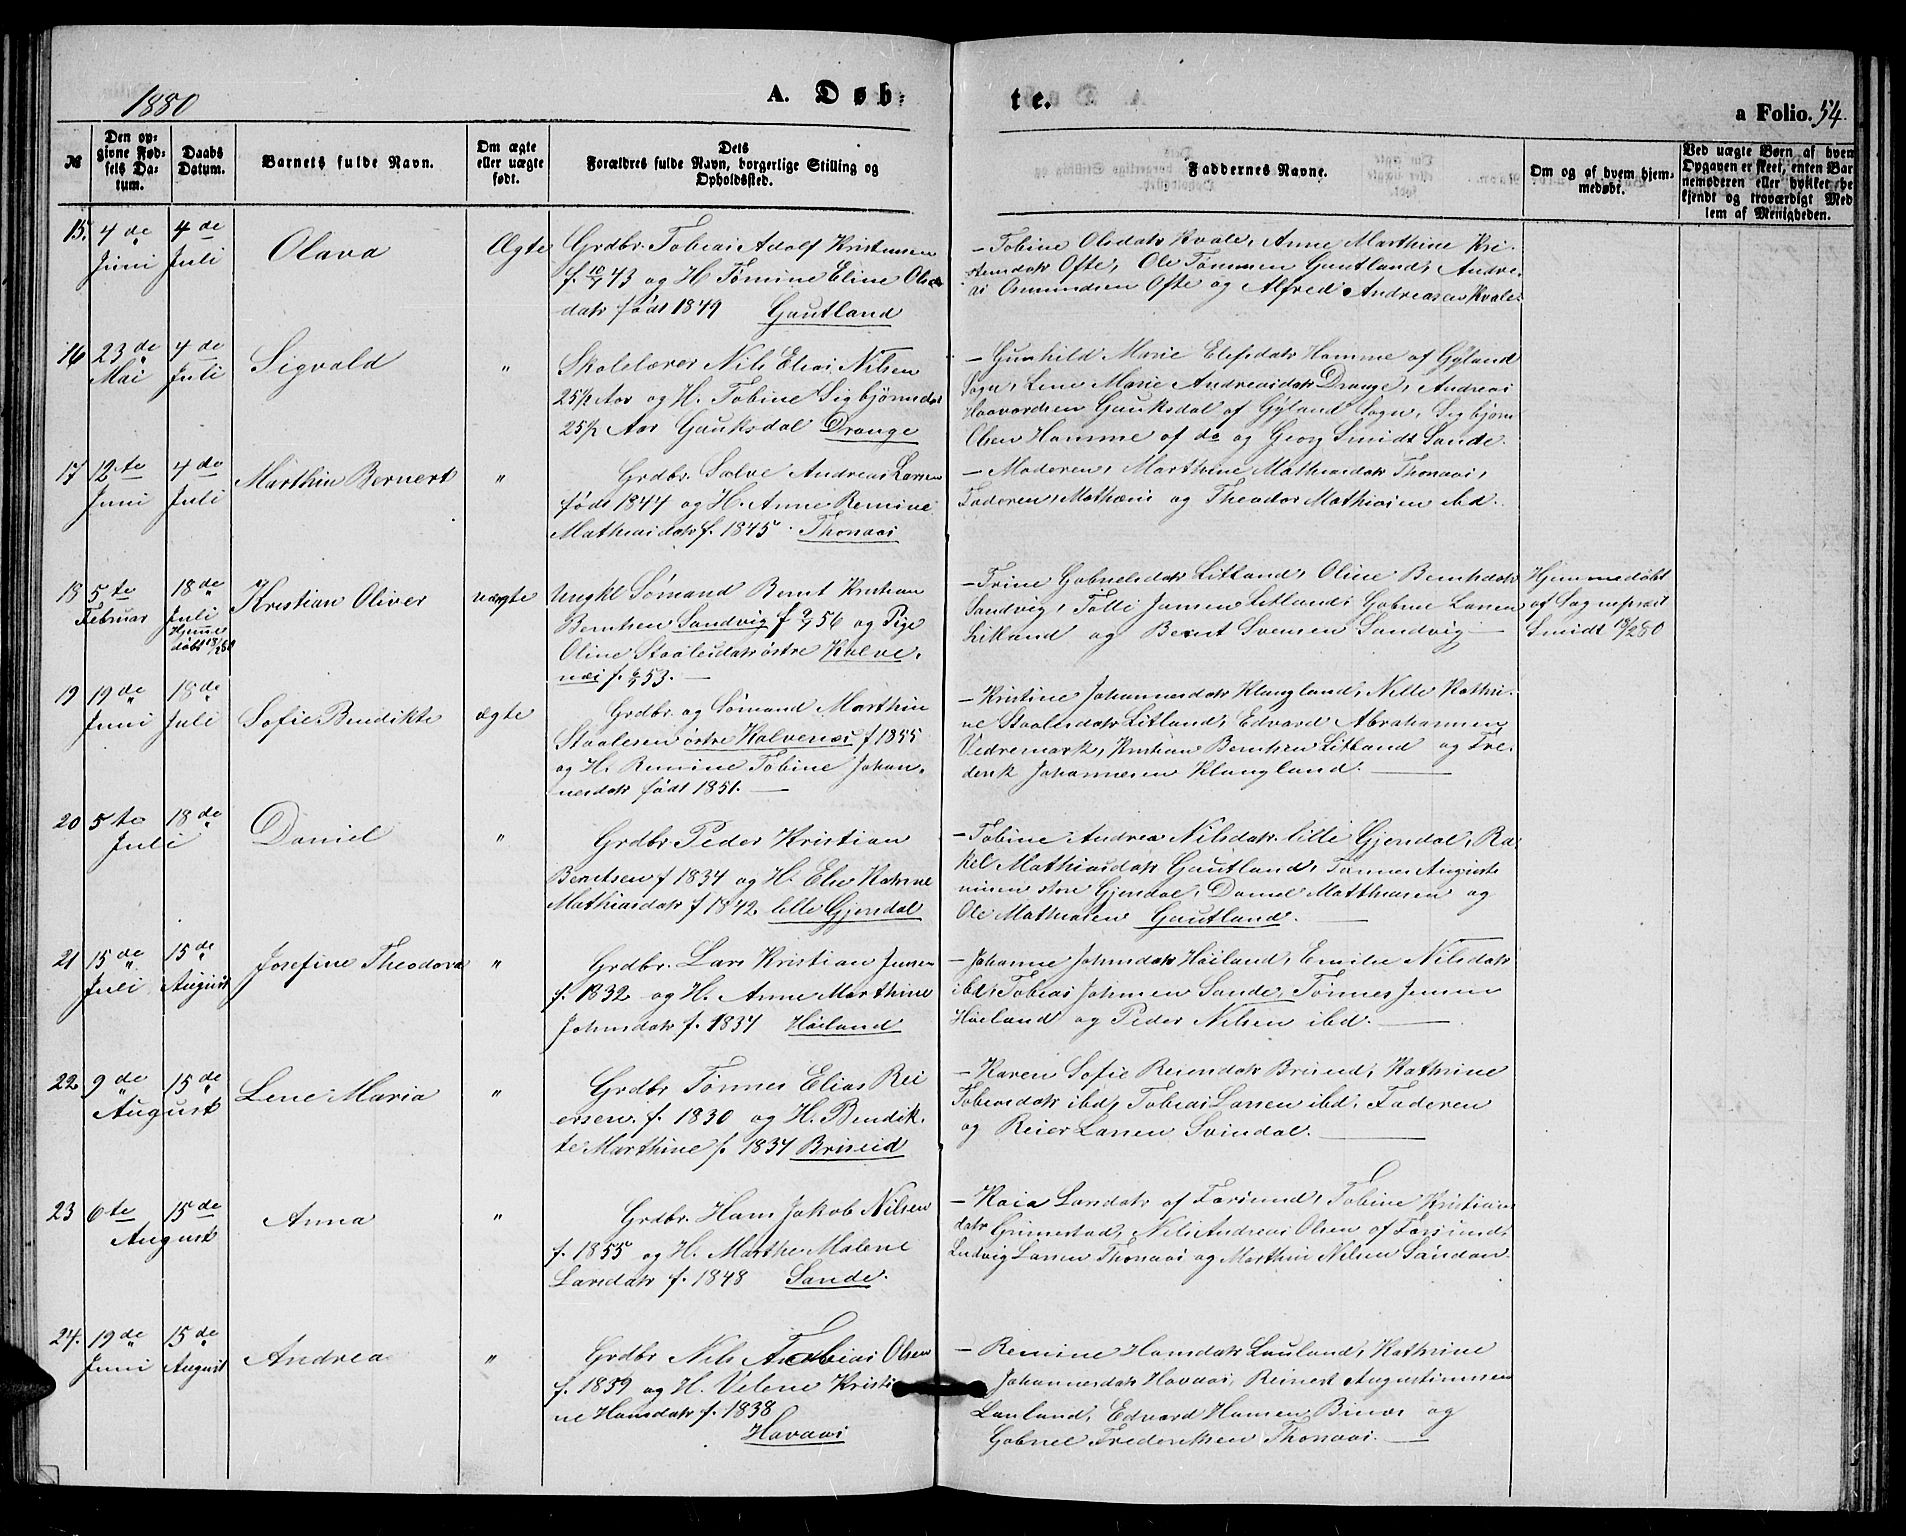 1880
A. Døb-
te.
a Folio. 54.
№
Den op-
givne Fød-
sels Da-
tum.
Daabs
Datum.
Barnets fulde Navn.
Om ægte
eller uægte
født.
Dets
Forældres fulde Navn, borgerlige Stilling og
Opholdssted.
Faddernes Navne.
Om og af hvem hjem-
medøbt.
Ved uægte Børn af hvem
Opgaven er skeet, enten Bar-
nemoderen eller hvilket be-
kjendt og troværdigt Med-
lem af Menigheden.
15. 4de Juni
4de Juli
Olava
Ægte
Grdbr. Tobias Adolf Kristensen
f. 43 og H. Tømine Eline Ols-
datr født 1849 Gautland
- Tobine Olsdatr Kvale, Anne Marthine Kri-
stensdatr Ofte, Ole Tønnesen Gautland, Andre-
as Osmundsen Ofte og Alfred Andreasen Kvale.
16 23de Mai
4de Juli
Sigvald
"
Skolelærer Nils Elias Nilsen
25½ Aar og H. Tobine Sigbjørnsdatr
25½ Aar Gauksdal Drange
- Gunhild Marie Elefsdatr Homme af Gyland
Sogn, Lene Marie Andreasdatr Drange, Andreas
Haavordsen Gauksdal af Gyland Sogn, Sigbjørn
Olsen Homme af do og Georg Smidt Sande.
17 12te Juni
4de Juli
Marthin Bernert
"
Grdbr. Salve Andreas Larsen
født 1844 og H. Anne Remine
Mathiasdatr f. 1845. Thonaas
- Moderen, Marthine Mathiasdatr Thonaas,
Faderen, Mathias og Theodor Mathiasen ibd.
18 5te Februar
18de Juli
Hjemme-
døbt 18/2 80
Kristian Oliver
uægte
Ungkl Sømand Bernt Kristian
Berntsen Sandvig f 9/7 56 og Pige
Oline Staalesdatr østre Kalve-
næs f. 53. —
- Trine Gabrielsdatr Litland, Oline Berntsdatr
Sandvig, Tolli Jansen Litland, Gabriel Larsen
Litland og Bernt Svensen Sandvig —
Hjemmedøbt
af Sogneprest
Smidt 18/2 80
19 19de Juni
18de Juli
Sofie Bendikte
ægte
Grdbr. og Sømand Marthin
Staalesen østre Kalvenæs f 1855
og H. Remine Tobine Johan-
nesdatr født 1851. —
- Kristine Johannesdatr Klungland, Nille Kathri-
ne Staalesdatr Litland, Edvard Abrahamsen
Vedremark, Kristian Berntsen Litland og Fre-
derik Johannesen Klungland. —
20 5te Juli
18de
Daniel
"
Grdbr. Peder Kristian
Berntsen f 1834 og H. Elen Katrine
Mathiasdatr f 1842. lille Gjendal
- Tobine Andrea Nilsdatr lille Gjendal, Ra-
kel Mathiasdatr Gautland, Tønnes Augusti-
nusen store Gjendal, Daniel Matthiasen og
Ole Mathiasen Gautland. —
21 15de Juli
15de August
Josefine Theodora
"
Grdbr. Lars Kristian Jensen
f. 1832 og H. Anne Marthine
Johnsdatr f. 1834 Høiland
- Johanne Johnsdatr Høiland, Emilie Nilsdatr
ibd, Tobias Johnsen Sande, Tønnes Jensen
Høiland og Peder Nilsen ibd. —
22. 9de August
15de
Lene Maria
"
Grdbr. Tønnes Elias Rei-
ersen f. 1830 og H. Bendik-
te Marthine f. 1834 Briseid
- Karen Sofie Reiersdatr Briseid, Kathrine
Tobiasdatr ibd, Tobias Larsen ibd, Faderen
og Reier Larsen Svindal. —
23 6te August
15de
Anna
"
Grdbr. Hans Jakob Nilsen
f. 1855 og H. Marthe Malene
Larsdatr f. 1848 Sande.
- Kaia Larsdatr af Farsund, Tobine Kristians-
datr Grimestad, Nils Andreas Olsen af Farsund,
Ludvig Larsen Thonaas og Marthin Nilsen Sandan
24. 19de Juni
15de August
Andrea
"
Grdbr Nils Tobias Olsen
f. 1839 og H. Velene Kristi-
ne Hansdatr f. 1838
Havaas
- Remine Hansdatr Lauland, Kathrine
Johannesdatr Havaas, Reinert Augustinusen
Lauland, Edvard Hansen Bisnes og
Gabriel Frederiksen Thonaas. —